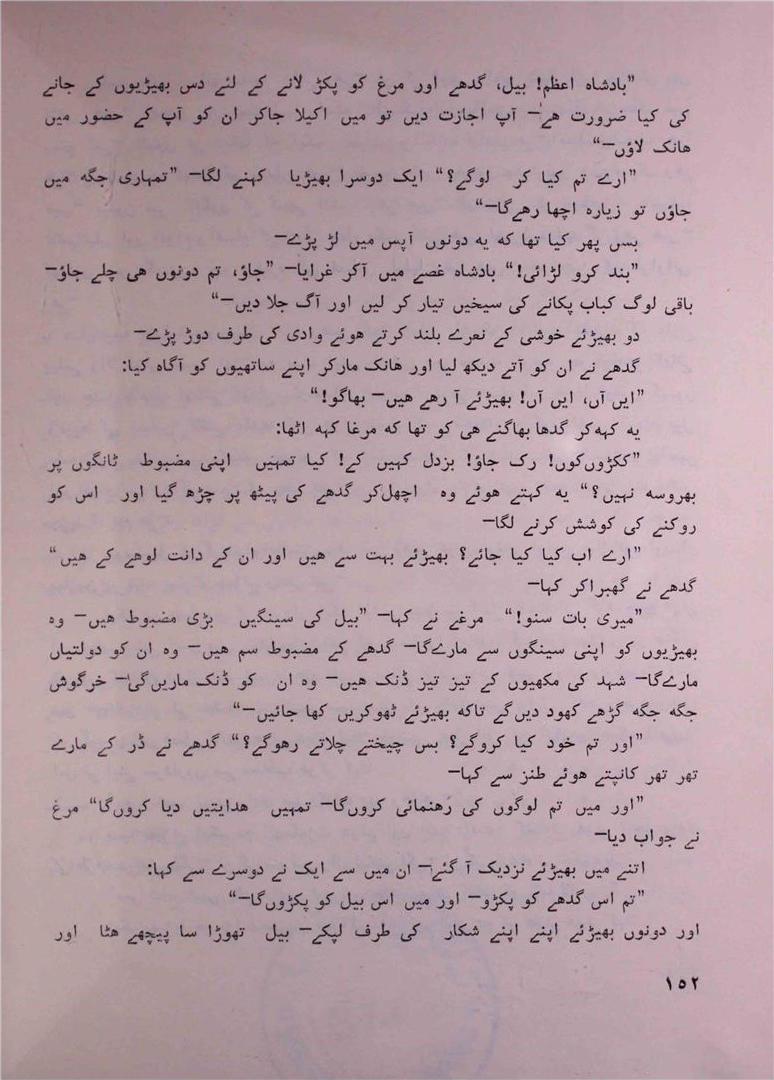 ”بادشاہ اعظم! بیل، گدھے اور مرغ کو پکڑ لانے کے لئے دس بھیڑیوں کے جانے
کی کیا ضرورت ھے— آپ اجازت دیں تو میں اکیلا جاکر ان کو آپ کے حضور میں
ھانک لاؤں—“
”ارے تم کیا کر لوگے؟“ ایک دوسرا بھیڑیا کہنے لگا— ”تمہاری جگہ میں
جاؤں تو زیارہ اچھا رھےگا—“
بس پھر کیا تھا کہ یہ دونوں آپس میں لڑ پڑے—
”بند کرو لڑائی!“ بادشاہ غصے میں آکر غرایا— ”جاؤ، تم دونوں ھی چلے جاؤ—
باقی لوگ کباب پکانے کی سیخیں تیار کر لیں اور آگ جلا دیں—“
دو بھیڑئے خوشی کے نعرے بلند کرتے ھوئے وادی کی طرف دوڑ پڑے—
گدھے نے ان کو آتے دیکھ لیا اور ھانک مارکر اپنے ساتھیوں کو آگاہ کیا:
”ایں آں، ایں آں! بھیڑئے آ رھے ھیں— بھاگو!“
یہ کہہکر گدھا بھاگنے ھی کو تھا کہ مرغا کہہ اٹھا:
”ککڑوںکوں! رک جاؤ! بزدل کہیں کے! کیا تمہیں اپنی مضبوط ٹانگوں پر
بھروسہ نہیں؟“ یہ کہتے ھوئے وہ اچھلکر گدھے کی پیٹھ پر چڑھ گیا اور اس کو
روکنے کی کوشش کرنے لگا—
”ارے اب کیا کیا جائے؟ بھیڑئے بہت سے ھیں اور ان کے دانت لوھے کے ھیں“
گدھے نے گھبراکر کہا—
”میری بات سنو!“ مرغے نے کہا— ”بیل کی سینگیں بڑی مضبوط ھیں— وہ
بھیڑیوں کو اپنی سینگوں سے مارےگا— گدھے کے مضبوط سم ھیں— وہ ان کو دولتیاں
مارےگا— شہد کی مکھیوں کے تیز تیز ڈنک ھیں— وہ ان کو ڈنک ماریںگی— خرگوش
جگہ جگہ گڑھے کھود دیںگے تاکہ بھیڑئے ٹھوکریں کھا جائیں—“
”اور تم خود کیا کروگے؟ بس چیختے چلاتے رھوگے؟“ گدھے نے ڈر کے مارے
تھر تھر کانپتے ھوئے طنز سے کہا—
”اور میں تم لوگوں کی رھنمائی کروںگا— تمہیں ھدایتیں دیا کروںگا“ مرغ
نے جواب دیا—
اتنے میں بھیڑئے نزدیک آ گئے— ان میں سے ایک نے دوسرے سے کہا:
”تم اس گدھے کو پکڑو— اور میں اس بیل کو پکڑوںگا—“
اور دونوں بھیڑئے اپنے اپنے شکار کی طرف لپکے— بیل تھوڑا سا پیچھے ھٹا اور
۱۵۲